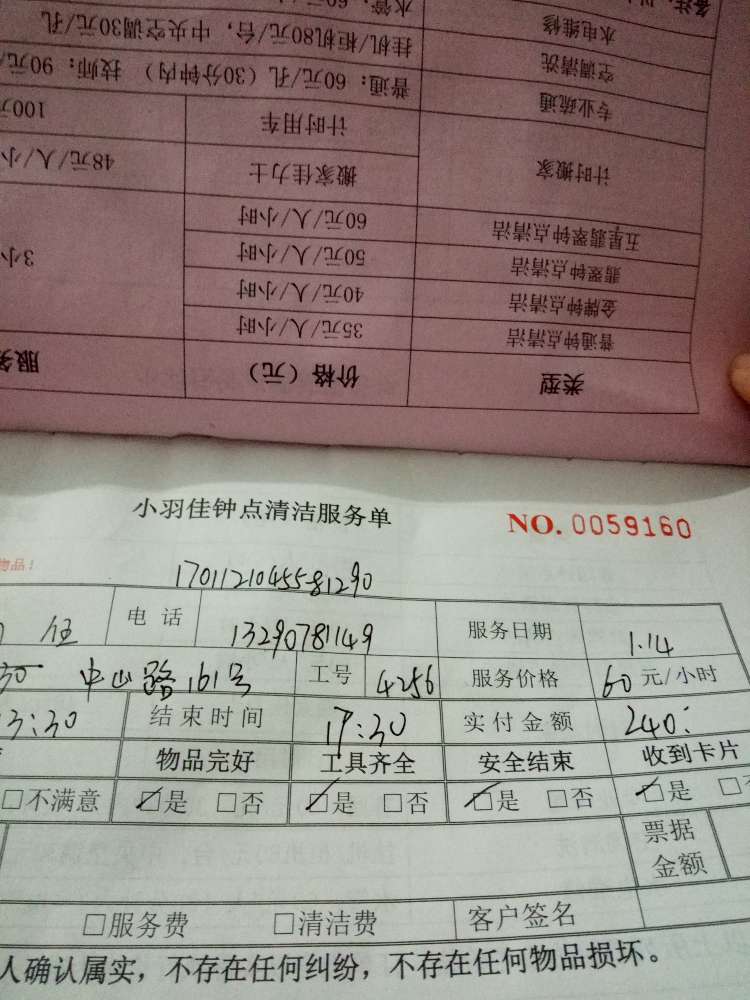 备注：以
水电维修 水管：60元
空调清洗 挂机/柜机80元/台，中央空调30元/孔
专业疏通 普通：60元/孔（30分钟内） 技师：90元
计时用车 100元
计时搬家 搬家佳力士 48元/人/小
五星翡翠钟点清洁 60元/人/小时
翡翠钟点清洁 50元/人/小时 3小
金牌钟点清洁 40元/人/小时
普通钟点清洁 35元/人/小时
类型 价格（元） 服务
小羽佳钟点清洁服务单 NO. 0059160
物品！
17011210455581290
伍 电话 13290781149 服务日期 1.14
30 中山路161号 工号 4256 服务价格 60元/小时
3:30 结束时间 17:30 实付金额 240:
物品完好 工具齐全 安全结束 收到卡片
□不满意 ☑是 □否 ☑是 □否 ☑是 □否 ☑是 □
票据金额
□服务费 □清洁费 客户签名
人确认属实，不存在任何纠纷，不存在任何物品损坏。